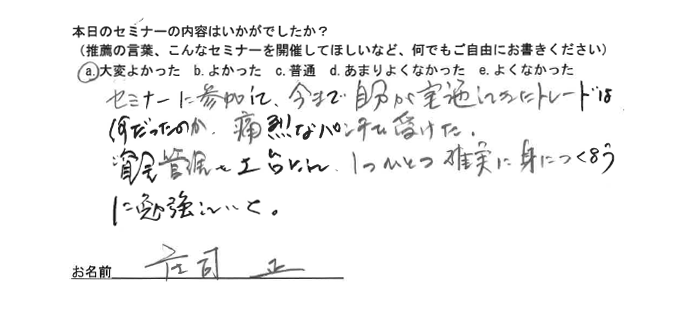 本日のセミナーの内容はいかがでしたか？
（推薦の言葉、こんなセミナーを開催してほしいなど、何でもご自由にお書きください）
a.大変よかった b.よかった c.普通 d.あまりよくなかった e.よくなかった
セミナーに参加して、今まで自分が実施してきたトレードは
何だったのか、痛烈なパンチを受けた。
資金管理を土台とし、1つひとつ確実に身につくよう
に勉強したいと。
お名前 庄司 正